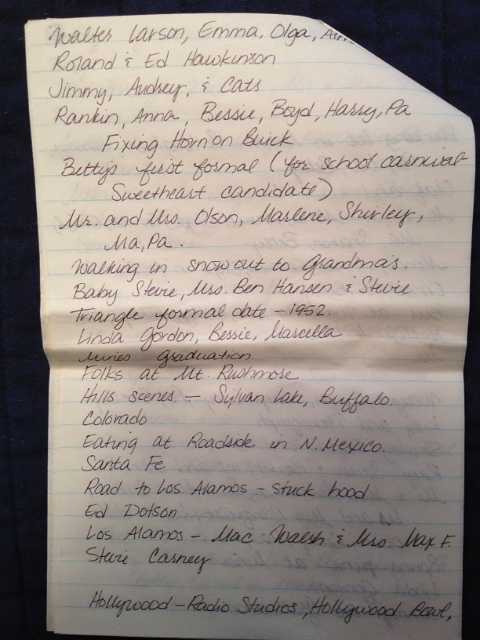 Walter Larson, Emma, Olga,
Roland & Ed Hawkinson
Jimmy, Audrey, & Cats
Rankin, Anna, Bessie, Boyd, Harry, Pa
Fixing Horn on Buick
Bettys first formal (for school carnival
Sweetheart candidate)
Mr. and Mrs. Olson, Marlene, Shirley,
Ma, Pa.
Walking in snow out to Grandma's.
Baby Stevie, Mrs. Ben Hansen & Stevie
Triangle formal date - 1952.
Linda Gordon, Bessie, Marcella
graduation
Folks at Mt. Rushmore
Hills scenes - Sylvan Lake, Buffalo
Colorado
Eating at Roadside in N. Mexico.
Santa Fe
Road to Los Alamos - stuck hood
Ed Dotson
Los Alamos - Mac Walsh & Mrs. Max F.
Steve Carney
Hollywood - Radio Studios, Hollywood Bowl,